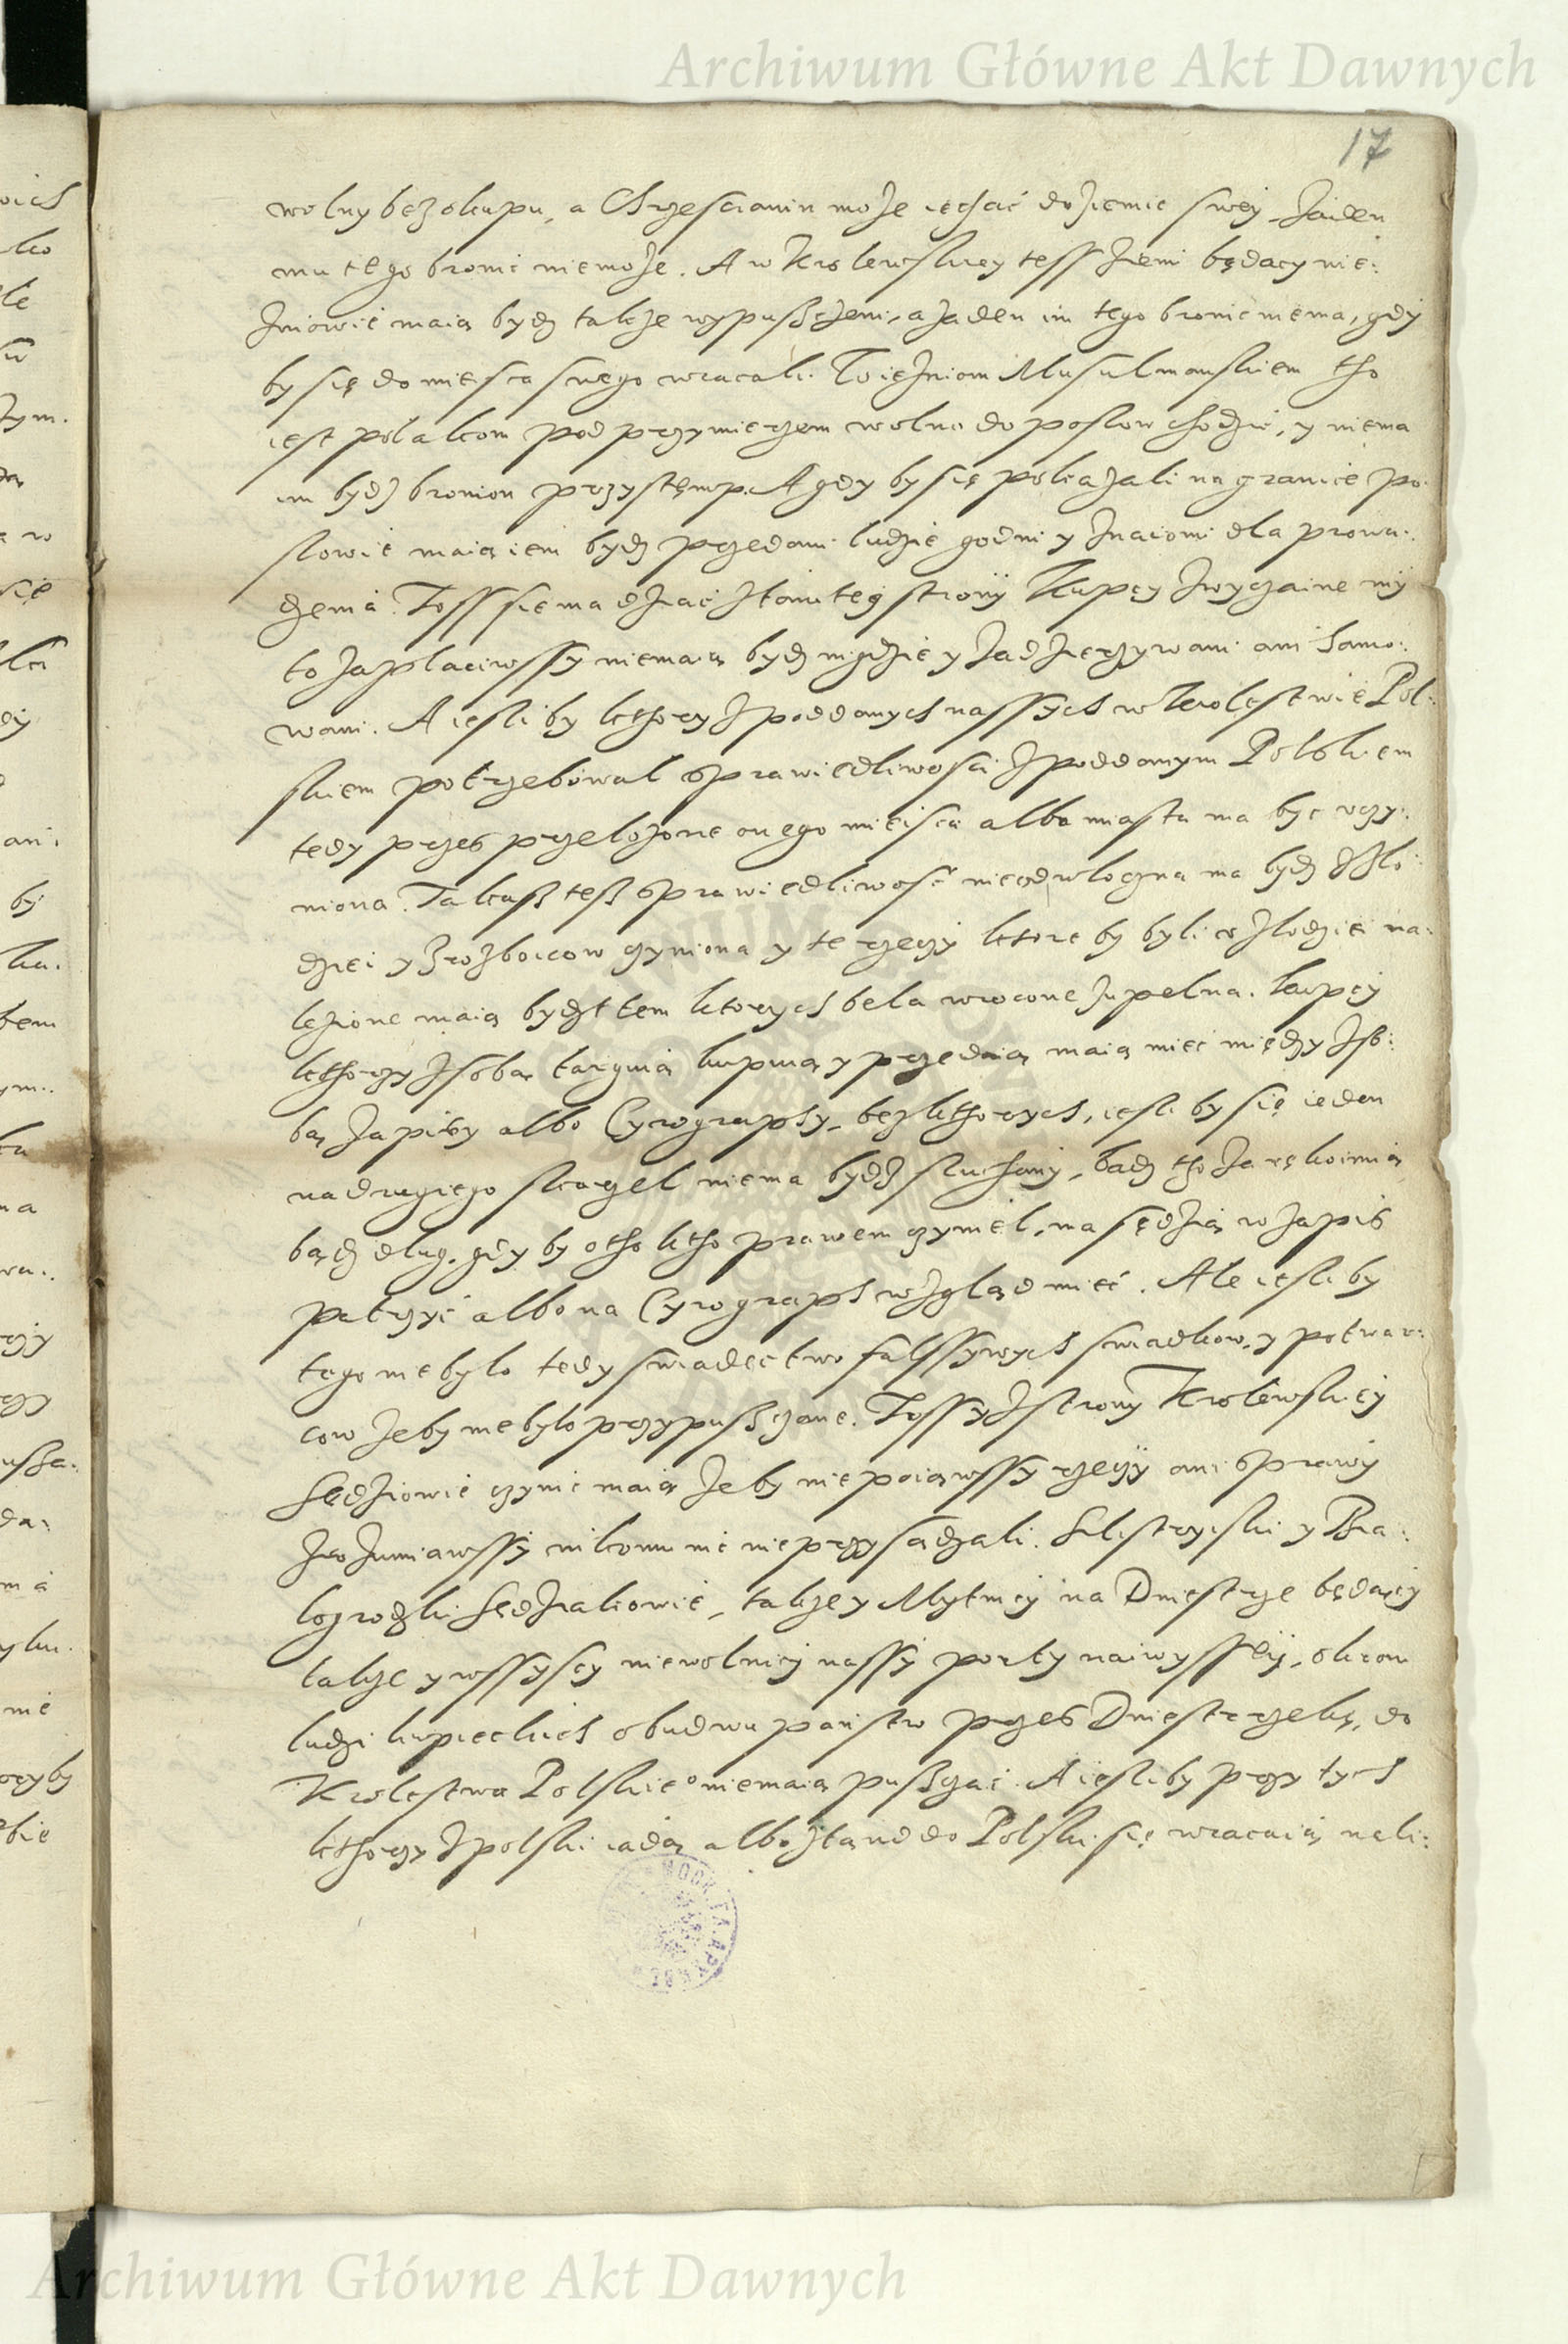 Archiwum Główne Akt Dawnych
17
wolny bez okupu, a Chrzescianin może iechać do ziemie swey, żaden
mu tego bronić niemoże. A w Krolewskiey tess ziemi będacy wię:
zniowie maią bydz także wypuszczeni, a żaden im tego bronic niema, gdy
by się do mieysca swego wracali. Więzniom Musulmanskiem tho
iest polakom pod przymierzem wolno do posłow chodzić, y niema
im bydz bronion przystęmp. A gdy by się pokazali na granice po:
słowie maią iem bydz przedani ludzie godni y znaiomi dla prowa:
dzenia. Toss się ma dziać z tamtey strony Kupcy zwyczaine my
to zapłaciwssy niemaią bydz nigdzie y zadzierzywani ani hamo:
wani. A iesli by kthory z poddanych nassych w krolestwie Pol:
skiem potrzebował sprawiedliwosci z poddanym Polskiem
tedy przes przełożone onego mieisca albo miasta ma byc uczy:
niona. Takass tess sprawiedliwość nieodwłoczna ma bydz z zło:
dziei y z rozboicow czyniona y te rzeczy ktore by byli w złodziei na:
lezione maią bydz tem ktorych bela wrocone zupełna. Kupcy
kthorzy z sobą targuią kupuią y przedaią maią mieć między so:
bą zapisy albo Cyrography, bez kthorych, iesli by się ieden
na drugiego skarzeł niema bydz słuchany, bądz tho za rękoimią
bądz dług. gdy by o tho ktho prawem czynieł, ma sędzia w zapis
patrzyć albo na Cyrograph wzgląd mieć. Ale iesli by
tego nie było tedy swiadectwo falssywych swiadkow, y potwar:
cow żeby nie było przypuszczane. Tossy z strony Krolewskiey
Sędziowie czynic maią żeby nie poiąwssy rzeczy ani sprawy
zrozumiawssy nikomu nic nie przysądzali. Silistryiski y Bia:
łogrodzki Sędziakowie, także y Mytnicy na Dniestrze będący
także y wssyscy niewolnicy nassy porty naiwyssey, okrom
ludzi kupieckich obudwu państw przes Dniestr rzekę, do
Krolestwa Polskie° niemaią puszczać. A iesliby przy tych
kthorzy z polski iadą albo ztand do Polski się wracaią nali:
Archiwum Główne Akt Dawnych